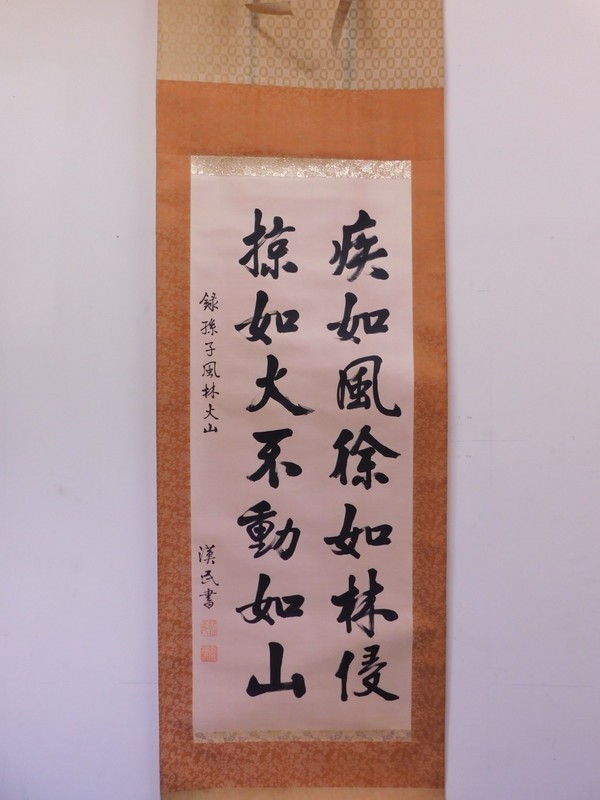 疾如風徐如林侵
掠如火不動如山
録孫子風林火山
漢民書